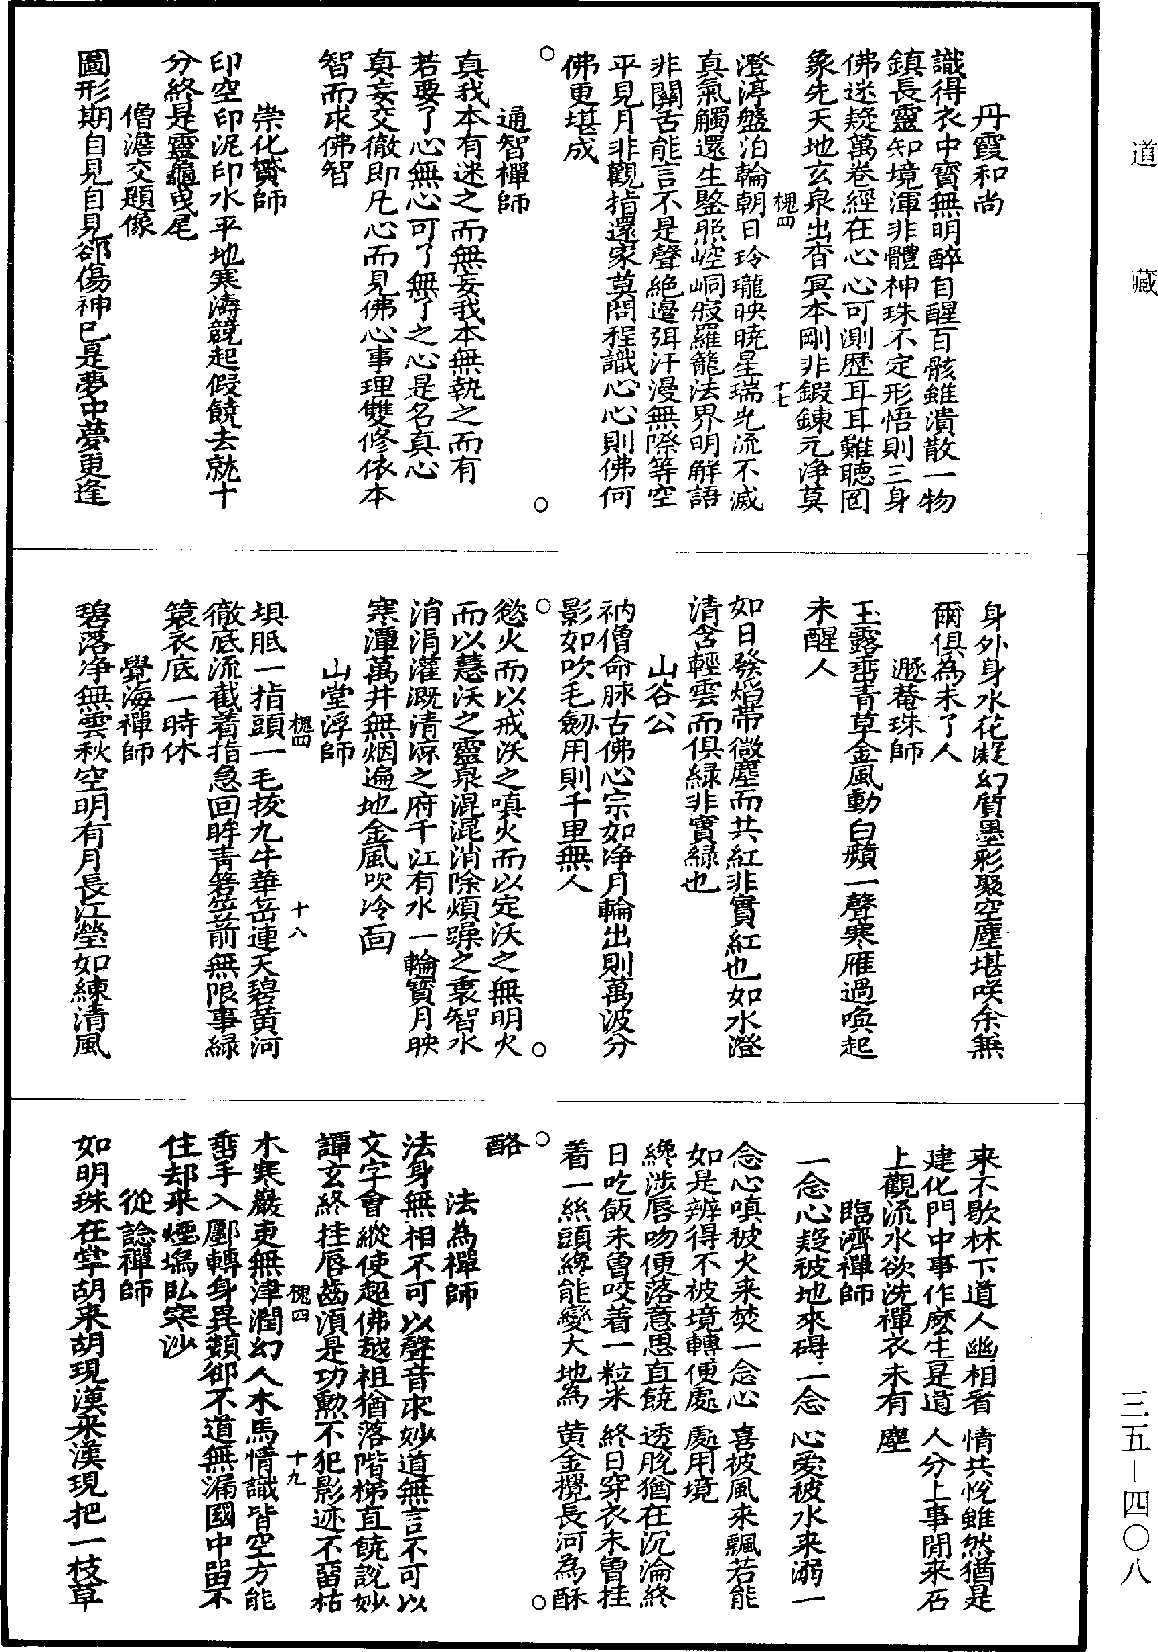 道藏
丹霞和尚
識得衣中寶無明醉自醒百骸雖潰散一物
鎮長靈知境渾非體神珠不定形悟則三身
佛迷疑萬卷經在心心可測歷耳耳難聽罔
象先天地玄泉出杳冥本剛非鍛鍊元淨莫
槐四
十七
澄渟盤泊輪朝日玲瓏映曉星瑞光流不滅
真氣觸還生鑒照崆峒寂羅籠法界明解語
非關舌能言不是聲絕邊弭汗漫無際等空
平見月非觀指還家莫問程識心心則佛何
佛更堪成
通智禪師
真我本有迷之而無妄我本無執之而有
若要了心無心可了無了之心是名真心
真妄交徹即凡心而見佛心事理雙修依本
智而求佛智
崇化贇師
印空印泥印水平地寒濤競起假饒去就十
分終是靈龜曳尾
僧澹交題像
圖形期自見自見郤傷神已是夢中夢更逢
身外身水花凝幻質墨彩聚空塵堪咲余無
爾俱為未了人
遯菴珠師
玉露垂青草金風動白蘋一聲寒雁過喚起
未醒人
如日發焰帶微塵而共紅非實紅也如水澄
清含輕雲而俱綠非實綠也
山谷公
衲僧命脉古佛心宗如净月輪出則萬波分
影如吹毛劒用則千里無人
慾火而以戒沃之嗔火而以定沃之無明火
而以慧沃之靈泉混混消除煩躁之衷智水
涓涓灌溉清涼之府千江有水一輪寶月映
寒潭萬井無烟遍地金風吹冷面
山堂浮師
槐四
十八
埧胝一指頭一毛拔九牛華岳連天碧黄河
徹底流截着指急回眸青箬笠前無限事緑
簑衣底一時休
覺海禪師
碧落净無雲秋空明有月長江瑩如練清風
來不歇林下道人幽相看情共悅雖然猶是
建化門中事作麼生是道人分上事閒來石
上觀流水欲洗禪衣未有塵
臨濟禪師
一念心疑被地來碍一念心愛被水来溺一
念心嗔被火来焚一念心喜被風来飄若能
如是辨得不被境轉便處處用境
纔涉唇吻便落意思直饒透脫猶在沉淪終
日吃飯未曾咬着一粒米終日穿衣未曾挂
着一絲頭纔能變大地為黄金攪長河為酥
酪
法為禪師
法身無相不可以聲音求妙道無言不可以
文字會縱使超佛越祖猶落階梯直饒説妙
譚玄終挂唇齒須是功勲不犯影迹不留枯
槐四
十九
木寒巖更無津潤幻人木馬情識皆空方能
垂手入鄽轉身異類郤不道無漏國中留不
住却来煙塢臥寒沙
從諗禪師
如明珠在掌胡来胡現漢来漢現把一枝草
三五—四〇八